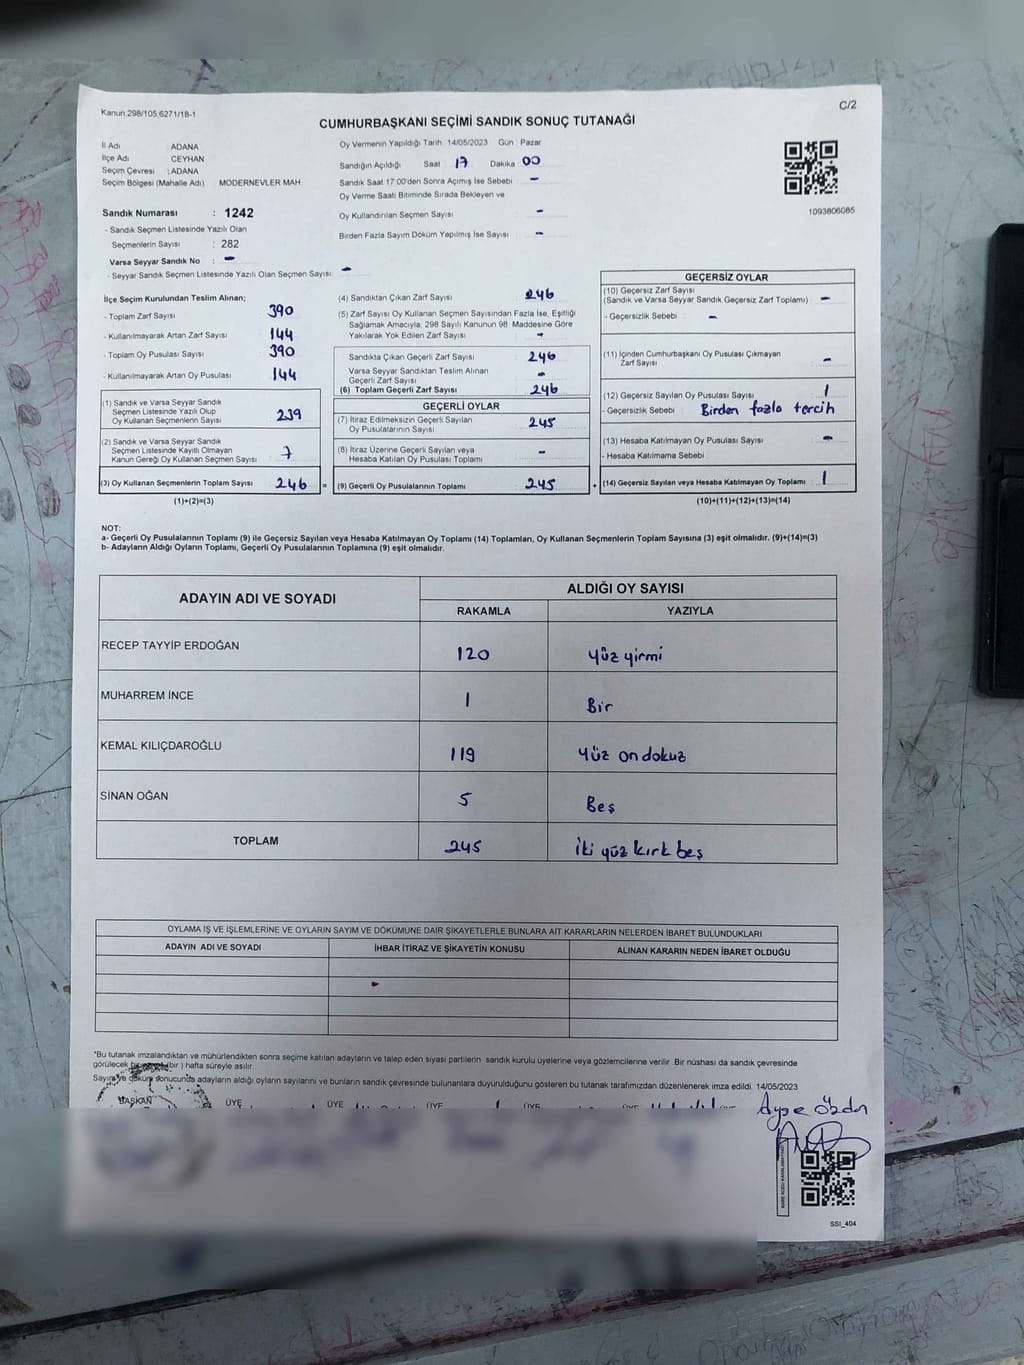 Kanun.298/105.6271/18-1
C/2
CUMHURBAŞKANI SEÇİMİ SANDIK SONUÇ TUTANAĞI
İl Adı ADANA
İlçe Adı CEYHAN
Seçim Çevresi : ADANA
Seçim Bölgesi (Mahalle Adı) MODERNEVLER MAH
Sandık Numarası : 1242
- Sandık Seçmen Listesinde Yazılı Olan
Seçmenlerin Sayısı : 282
Varsa Seyyar Sandık No : -
- Seyyar Sandık Seçmen Listesinde Yazılı Olan Seçmen Sayısı : -
Oy Vermenin Yapıldığı Tarih 14/05/2023 Gün Pazar
Sandığın Açıldığı Saat 17 Dakika 00
Sandık Saat 17:00'den Sonra Açımış İse Sebebi -
Oy Verme Saati Bitiminde Sırada Bekleyen ve
Oy Kullandırılan Seçmen Sayısı -
Birden Fazla Sayım Döküm Yapılmış İse Sayısı -
1093806085
İlçe Seçim Kurulundan Teslim Alınan;
- Toplam Zarf Sayısı 390
- Kullanılmayarak Artan Zarf Sayısı 144
- Toplam Oy Pusulası Sayısı 390
- Kullanılmayarak Artan Oy Pusulası 144
(1) Sandık ve Varsa Seyyar Sandık
Seçmen Listesinde Yazılı Olup
Oy Kullanan Seçmenlerin Sayısı 239
(2) Sandık ve Varsa Seyyar Sandık
Seçmen Listesinde Kayıtlı Olmayan
Kanun Gereği Oy Kullanan Seçmen Sayısı 7
(3) Oy Kullanan Seçmenlerin Toplam Sayısı 246 =
(1)+(2)=(3)
(4) Sandıktan Çıkan Zarf Sayısı 246
(5) Zarf Sayısı Oy Kullanan Seçmen Sayısından Fazla İse, Eşitliği
Sağlamak Amacıyla, 298 Sayılı Kanunun 98. Maddesine Göre
Yakılarak Yok Edilen Zarf Sayısı -
Sandıkta Çıkan Geçerli Zarf Sayısı 246
Varsa Seyyar Sandıktan Teslim Alınan
Geçerli Zarf Sayısı -
(6) Toplam Geçerli Zarf Sayısı 246
GEÇERLİ OYLAR
(7) İtiraz Edilmeksizin Geçerli Sayılan
Oy Pusulalarının Sayısı 245
(8) İtiraz Üzerine Geçerli Sayılan veya
Hesaba Katılan Oy Pusulası Toplamı -
(9) Geçerli Oy Pusulalarının Toplamı 245 +
GEÇERSİZ OYLAR
(10) Geçersiz Zarf Sayısı
(Sandık ve Varsa Seyyar Sandık Geçersiz Zarf Toplamı) -
- Geçersizlik Sebebi -
(11) İçinden Cumhurbaşkanı Oy Pusulası Çıkmayan
Zarf Sayısı -
(12) Geçersiz Sayılan Oy Pusulası Sayısı 1
- Geçersizlik Sebebi Birden fazla tercih
(13) Hesaba Katılmayan Oy Pusulası Sayısı -
- Hesaba Katılmama Sebebi
(14) Geçersiz Sayılan veya Hesaba Katılmayan Oy Toplamı 1
(10)+(11)+(12)+(13)=(14)
NOT:
a- Geçerli Oy Pusulalarının Toplamı (9) ile Geçersiz Sayılan veya Hesaba Katılmayan Oy Toplamı (14) Toplamları, Oy Kullanan Seçmenlerin Toplam Sayısına (3) eşit olmalıdır. (9)+(14)=(3)
b- Adayların Aldığı Oyların Toplamı, Geçerli Oy Pusulalarının Toplamına (9) eşit olmalıdır.
ADAYIN ADI VE SOYADI
ALDIĞI OY SAYISI
RAKAMLA YAZIYLA
RECEP TAYYİP ERDOĞAN 120 Yüz yirmi
MUHARREM İNCE 1 Bir
KEMAL KILIÇDAROĞLU 119 Yüz on dokuz
SİNAN OĞAN 5 Beş
TOPLAM 245 İki yüz kırk beş
OYLAMA İŞ VE İŞLEMLERİNE VE OYLARIN SAYIM VE DÖKÜMÜNE DAİR ŞİKAYETLERLE BUNLARA AİT KARARLARIN NELERDEN İBARET BULUNDUKLARI
ADAYIN ADI VE SOYADI İHBAR İTİRAZ VE ŞİKAYETİN KONUSU ALINAN KARARIN NEDEN İBARET OLDUĞU
*Bu tutanak imzalandıktan ve mühürlendikten sonra seçime katılan adayların ve talep eden siyasi partilerin sandık kurulu üyelerine veya gözlemcilerine verilir. Bir nüshası da sandık çevresinde
görülecek bir (bir) hafta süreyle asılır
Sayım ve döküm sonucunda adayların aldığı oyların sayılarını ve bunların sandık çevresinde bulunanlara duyurulduğunu gösteren bu tutanak tarafımızdan düzenlenerek imza edildi. 14/05/2023
BAŞKAN ÜYE ÜYE ÜYE ÜYE ÜYE ÜYE
SSI_404